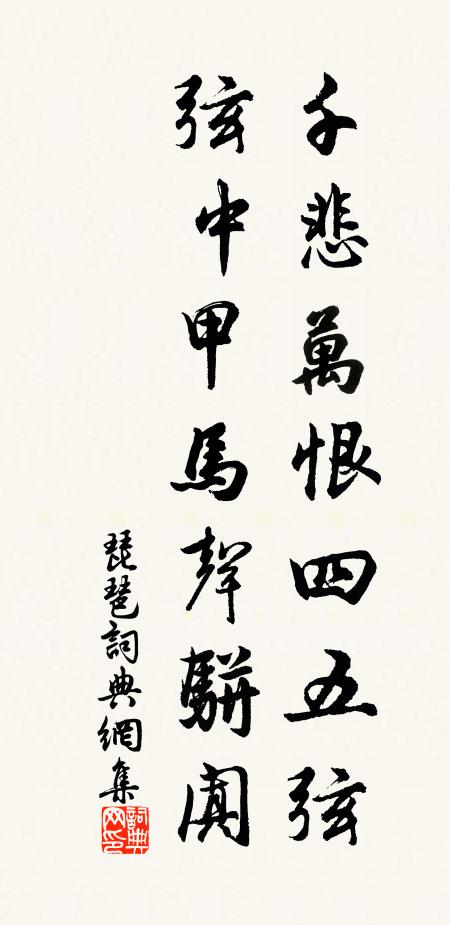 千悲萬恨四五弦
弦中甲馬聲駢闐
琵琶詞典網集
詞典網印